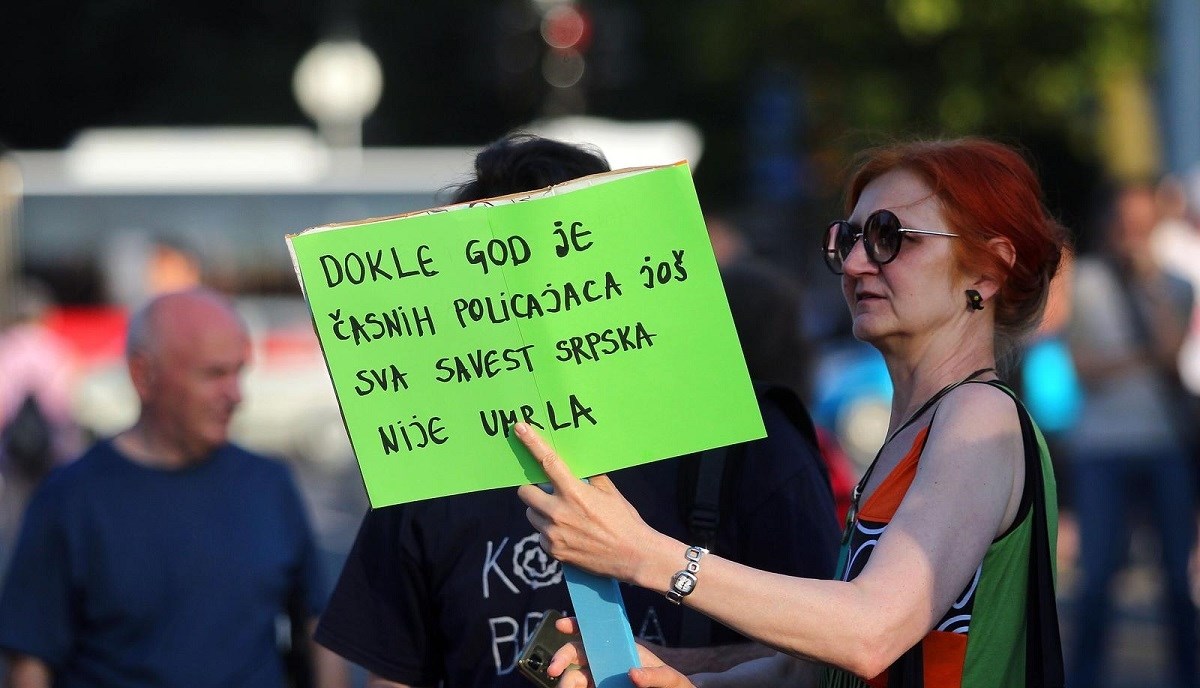 DOKLE GOD JE
ČASNIH POLICAJACA JOŠ
SVA SAVEST SRPSKA
NIJE UMRLA